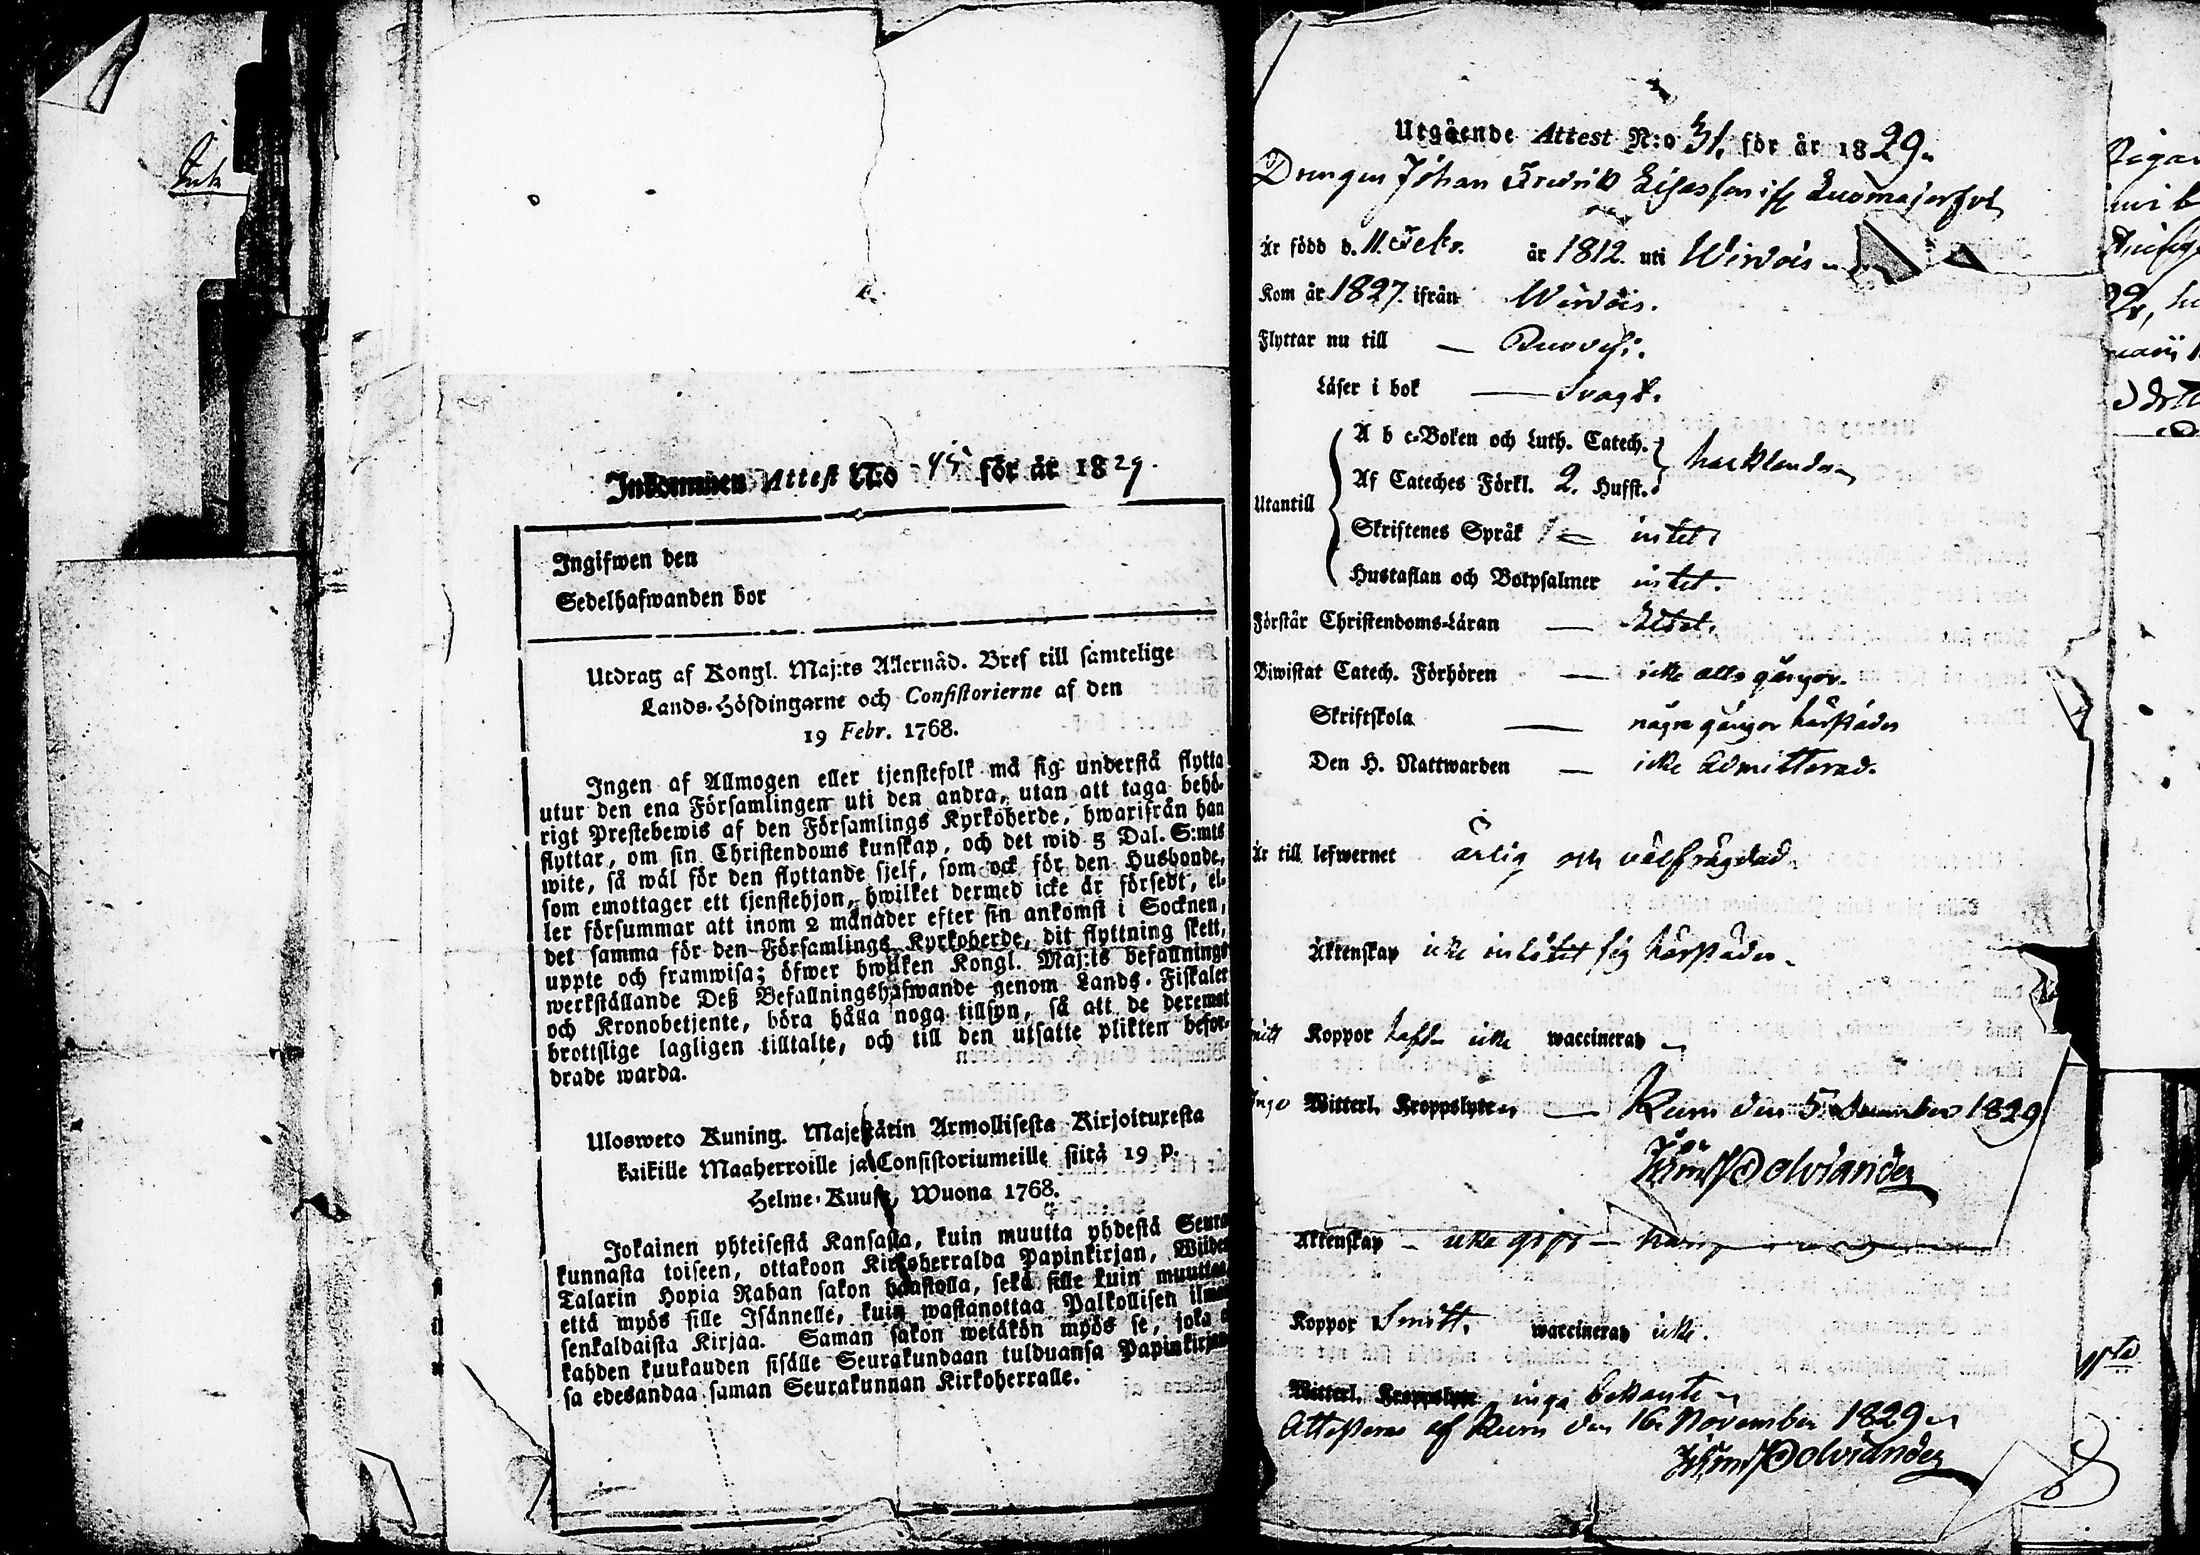 Inkommen Attest N:o 45 för år 1829.
Ingifwen den
Sedelhafwanden bor
Utdrag af Kongl. Maj:ts Allernåd. Bref till samtelige
Lands-Höfdingarne och Consistorierne af den
19 Febr. 1768.
Ingen af Allmogen eller tjenstefolk må sig understå flytta
utur den ena Församlingen uti den andra, utan att taga behö-
rigt Prestebewis af den Församlings Kyrkoherde, hwarifrån han
flyttar, om sin Christendoms kunskap, och det wid 5 Dal. S:mts
wite, så wäl för den flyttande sjelf, som ock för den Husbonde,
som emottager ett tjenstehjon, hwilket dermed icke är försedt, el-
ler försummar att inom 2 månader efter sin ankomst i Socknen,
det samma för den Församlings Kyrkoherde, dit flyttning skett,
uppte och framwisa; öfwer hwilken Kongl. Maj:ts befallnings
werkställande Deß Befallningshafwande genom Lands-Fiskaler
och Kronobetjente, böra hålla noga tillsyn, så att de deremot
brottslige lagligen tilltalte, och till den utsatte plikten befor-
drade warda.
Ulosweto Kuning. Majestätin Armollisesta Kirjoituxesta
kaikille Maaherroille ja Consistoriumeille siitä 19 p.
Helme-Kuusa, Wuona 1768.
Jokainen yhteisestä Kansasta, kuin muutta yhdestä Seura
kunnasta toiseen, ottakoon Kirkoherralda Papinkirjan, Wiiden
Talarin Hopia Rahan sakon haastolla, sekä sille kuin muuttaa
että myös sille Isännelle, kuin wastanottaa Palkollisen ilman
senkaldaista Kirjaa. Saman sakon wetäkön myös se, joka
kahden kuukauden sisälle Seurakundaan tulduansa Papinkirjan
sa edesandaa saman Seurakunnan Kirkoherralle.
Utgående Attest N:o 31, för år 1829.
Drengen Johan Fredrik
Är född d. 11 Febr. år 1812 uti Wirdois
Kom år 1827. ifrån Wirdois.
Flyttar nu till — Ruovesi.
Läser i bok — Svagt.
A b c-Boken och Luth. Catech.
Af Cateches Förkl. 2. Hufst. hacklande
Utantill
Skriftenes Språk intet
Hustaflan och Botpsalmer intet.
Förstår Christendoms-Läran —
Biwistat Catech. Förhören — icke alla gånger.
Skriftskola — några gånger härstädes
Den H. Nattwarden — icke admitterad.
Är till lefwernet ärlig och välfrägdad.
Äktenskap icke inlåtit sig härstädes.
Koppor haft icke waccinerad
Inga Witterl. Kroppslyten — Kuru den 5 December 1829.
Polviander
Äktenskap — icke
Koppor Smitt. waccinerad icke.
Witterl. Kroppslyte inga bekante
Attesteras af Kuru den 16 November 1829
Polviander